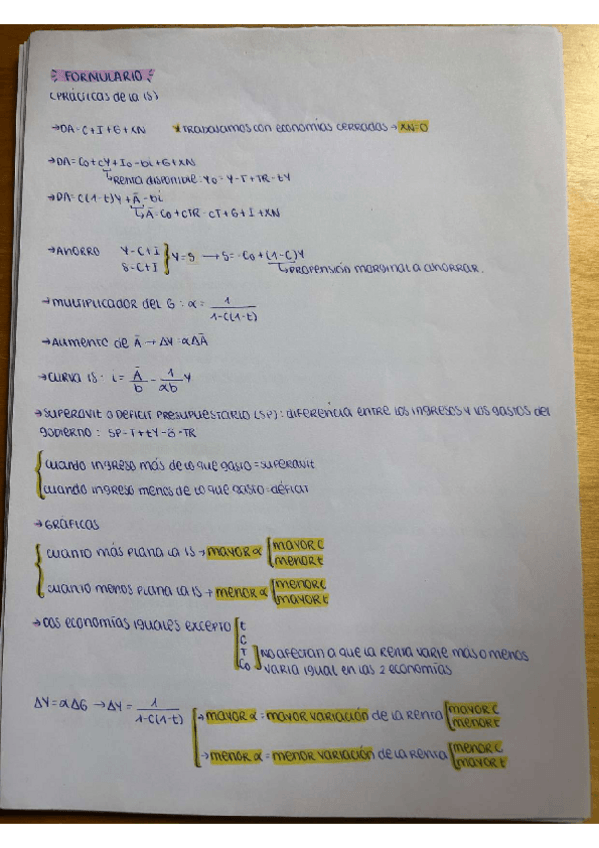 FORMULARIO
(PRÁCTICAS de la IS)
→DA=C+I+G+XN *TRABAJAMOS CON economías cerradas → XN=0
→DA=Co+cY+Io-bi+G+XN
↳Renta disponible: YD=Y-T+TR-tY
→DA=C(1-t)Y+Ā-bi
↳Ā=Co+CTR-CT+G+I+XN
→AHORRO Y=C+I
S=C+I } Y=S → S=-Co+(1-C)Y
↳PROPENSIÓN marginal a ahorrar.
→multiplicador del G: α= 1/1-C(1-t)
→Aumento de Ā → ΔY=αΔĀ
→CURVA IS: i= Ā/b - 1/αb Y
→SUPERAVIT O DÉFICIT PRESUPUESTARIO (SP): diferencia entre los ingresos y los gastos del
gobierno: SP=T+tY-G-TR
cuando ingreso más de lo que gasto=superavit
cuando ingreso menos de lo que gasto=déficit
→GRÁFICAS
cuanto más plana la IS → mayor α [mayor c
menor t
cuanto menos plana la IS → menor α [menor c
mayor t
→Dos economías iguales excepto [t
C
T
Co] No afectan a que la renta varíe mas o menos
varia igual en las 2 economías
ΔY=αΔG → ΔY= 1/1-C(1-t) → mayor α = mayor variación de la renta [mayor c
menor t
→ menor α = menor variación de la renta [menor c
mayor t